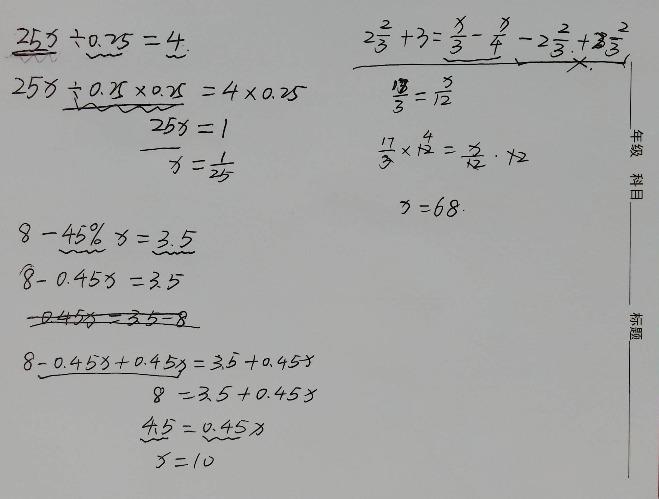 25x ÷ 0.25 = 4
25x ÷ 0.25 × 0.25 = 4 × 0.25
25x = 1
x = 1/25
8 - 45% x = 3.5
8 - 0.45x = 3.5
-0.45x = 3.5-8
8 - 0.45x + 0.45x = 3.5 + 0.45x
8 = 3.5 + 0.45x
4.5 = 0.45x
x = 10
2 2/3 + 3 = x/3 - x/4 - 2 2/3 + 2 2/3
17/3 = x/12
17/3 × 12 4 = x/12 · 12
x = 68.
年级 科目
标题